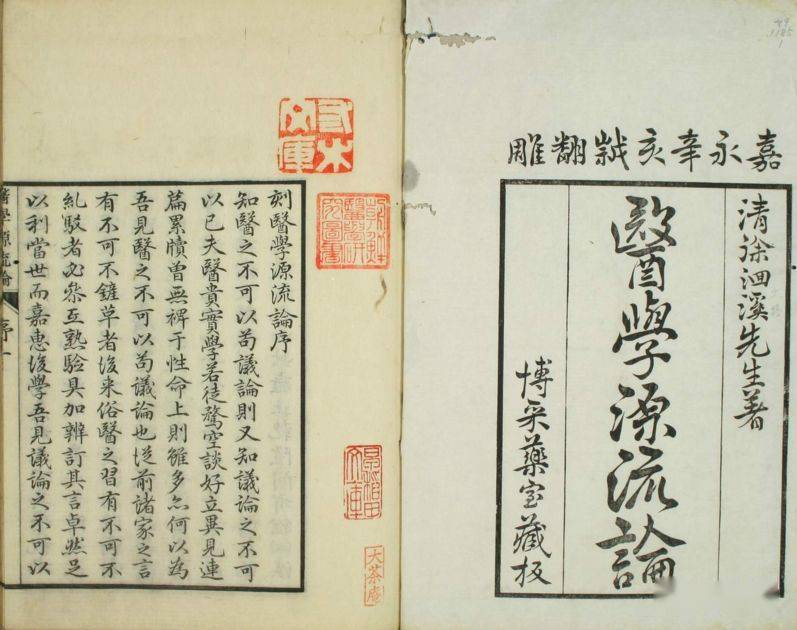 嘉永辛亥翻雕
清徐洄溪先生著
醫學源流論
博采藥室藏板
刻醫學源流論序
知醫之不可以苟議論則又知議論之不可
以已夫醫貴實學若徒騖空談好立異見連
篇累牘曾無裨于性命上則雖多亦何以為
吾見醫之不可以苟議論也從前諸家之言
有不可不鏟草者後來俗醫之習有不可不
糺駁者必參互熟驗具加辨訂其言卓然足
以利當世而嘉惠後學吾見議論之不可以
醫學源流論 序 一
文庫
文庫
大茶庵